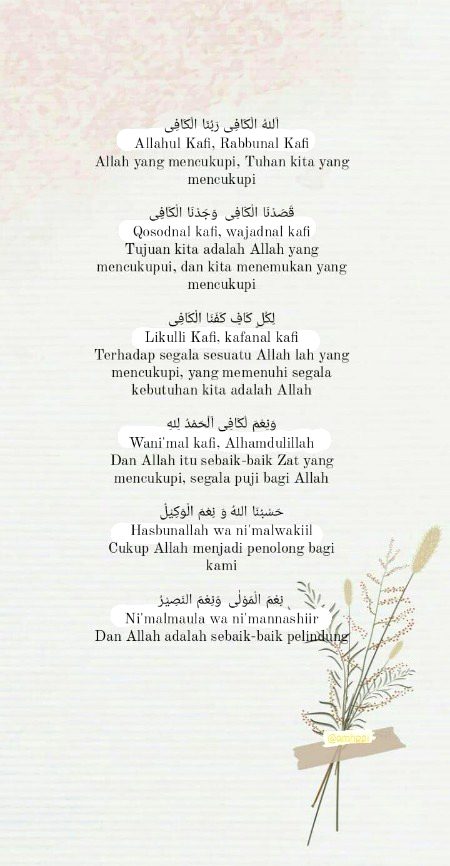 اَللهُ الْكَافِى رَبُّنَا الْكَافِى
Allahul Kafi, Rabbunal Kafi
Allah yang mencukupi, Tuhan kita yang
mencukupi
قَصَدْنَا الْكَافِى وَجَدْنَا الْكَافِى
Qosodnal kafi, wajadnal kafi
Tujuan kita adalah Allah yang
mencukupui, dan kita menemukan yang
mencukupi
لِكُلِّ كَافٍ كَفَنَا الْكَافِى
Likulli Kafi, kafanal kafi
Terhadap segala sesuatu Allah lah yang
mencukupi, yang memenuhi segala
kebutuhan kita adalah Allah
وَنِعْمَ لْكَافِى اَلْحَمْدُ لِلهِ
Wani'mal kafi, Alhamdulillah
Dan Allah itu sebaik-baik Zat yang
mencukupi, segala puji bagi Allah
حَسْبُنَا اللهُ وَ نِعْمَ الْوَكِيْلُ
Hasbunallah wa ni'malwakiil
Cukup Allah menjadi penolong bagi
kami
نِعْمَ الْمَوْلٰى وَنِعْمَ النَصِيْرُ
Ni'malmaula wa ni'mannashiir
Dan Allah adalah sebaik-baik pelindung